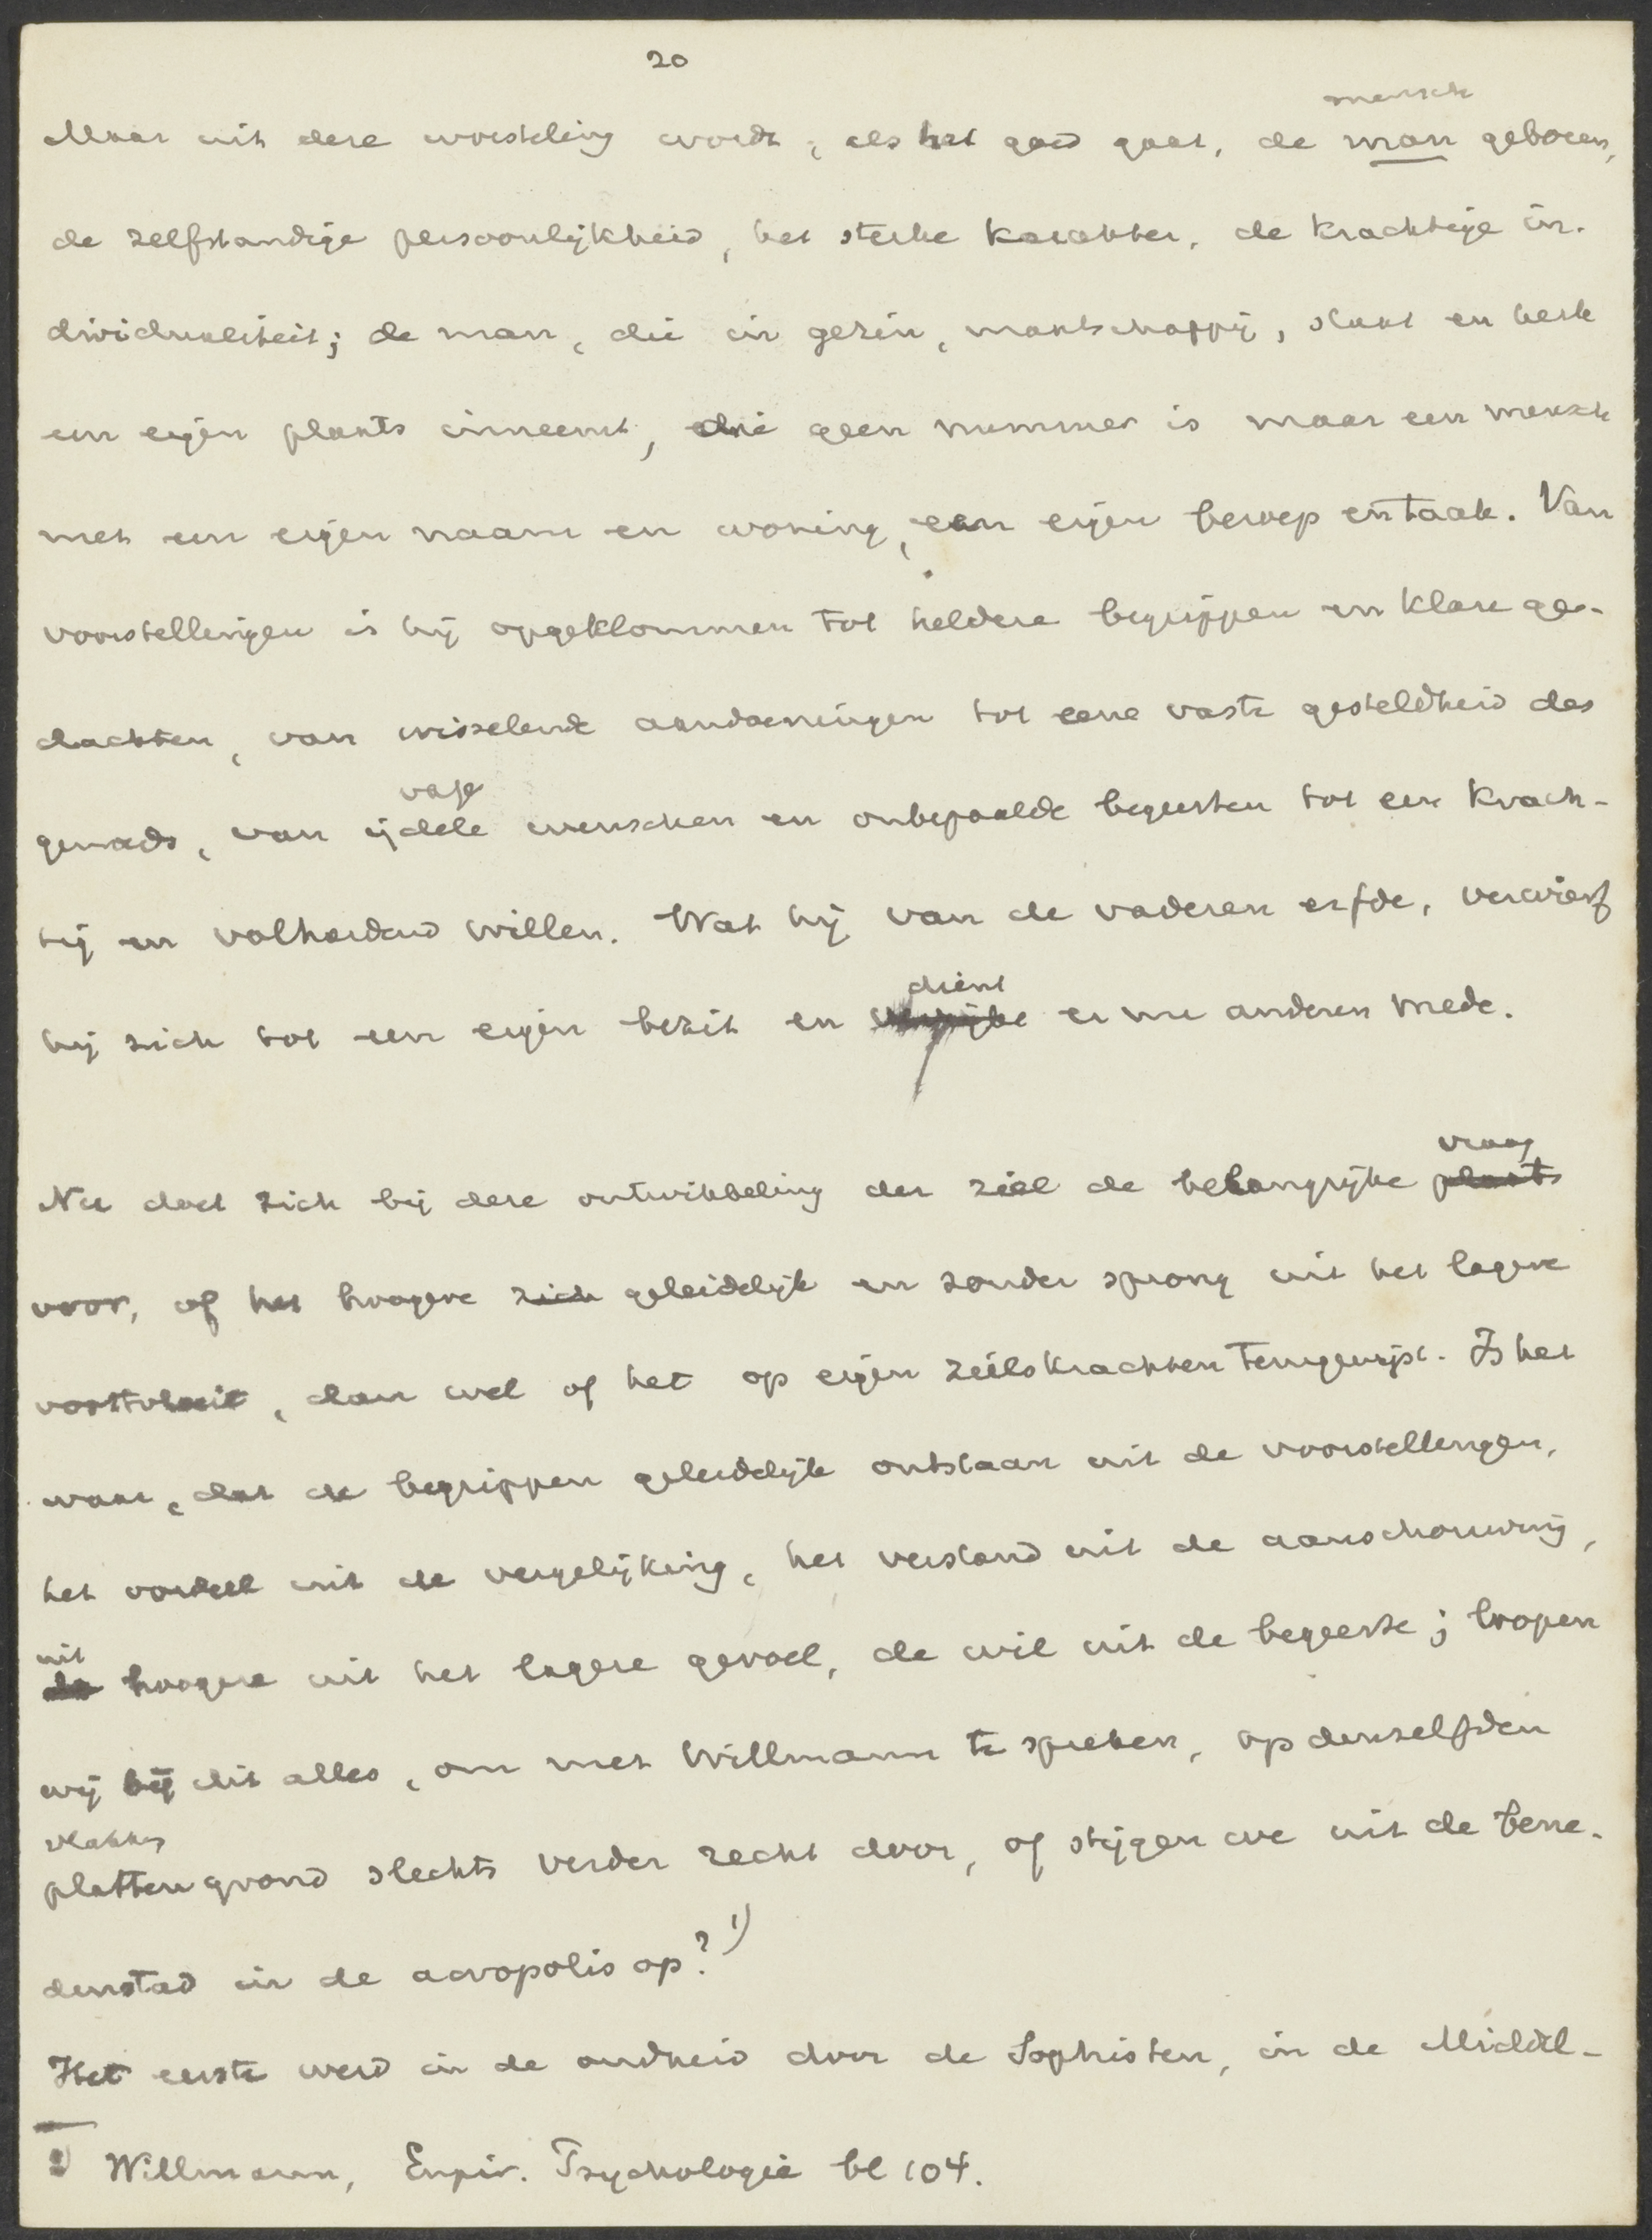 20
mensch
Maar uit deze worsteling wordt, als het goed gaat, de man geboren,
de zelfstandige persoonlijkheid, het sterke karakter, de krachtige in-
dividualiteit; de man, die in gezin, maatschappij, staat en kerk
een eigen plaats inneemt, die geen nummer is maar een mensch
met een eigen naam en woning, een eigen beroep en taak. Van
voorstellingen is hij opgeklommen tot heldere begrippen en klare ge-
dachten, van wisselende aandoeningen tot eene vaste gesteldheid des
vage
gemoeds, van ijdele wenschen en onbepaalde begeerten tot een krach-
tig en volhardend willen. Wat hij van de vaderen erfde, verwierf
dient
hij zich tot een eigen bezit en er nu anderen mede.
vraag
Nu doet zich bij deze ontwikkeling der ziel de belangrijke plaats
voor, of het hoogere zich geleidelijk en zonder sprong uit het lagere
voortvloeit, dan wel of het op eigen zielskrachten terugwijst. Is het
waar, dat de begrippen geleidelijk ontstaan uit de voorstellingen,
het oordeel uit de vergelijking, het verstand uit de aanschouwing,
uit
de hoogere uit het lagere gevoel, de wil uit de begeerte; loopen
wij bij dit alles, om met Willmann te spreken, op denzelfden
vlakken
platten grond slechts verder recht door, of stijgen we uit de bene-
denstad in de acropolis op? 1)
Het eerste werd in de oudheid door de Sophisten, in de Middel-
1) Willmann, Empir. Psychologie bl 104.